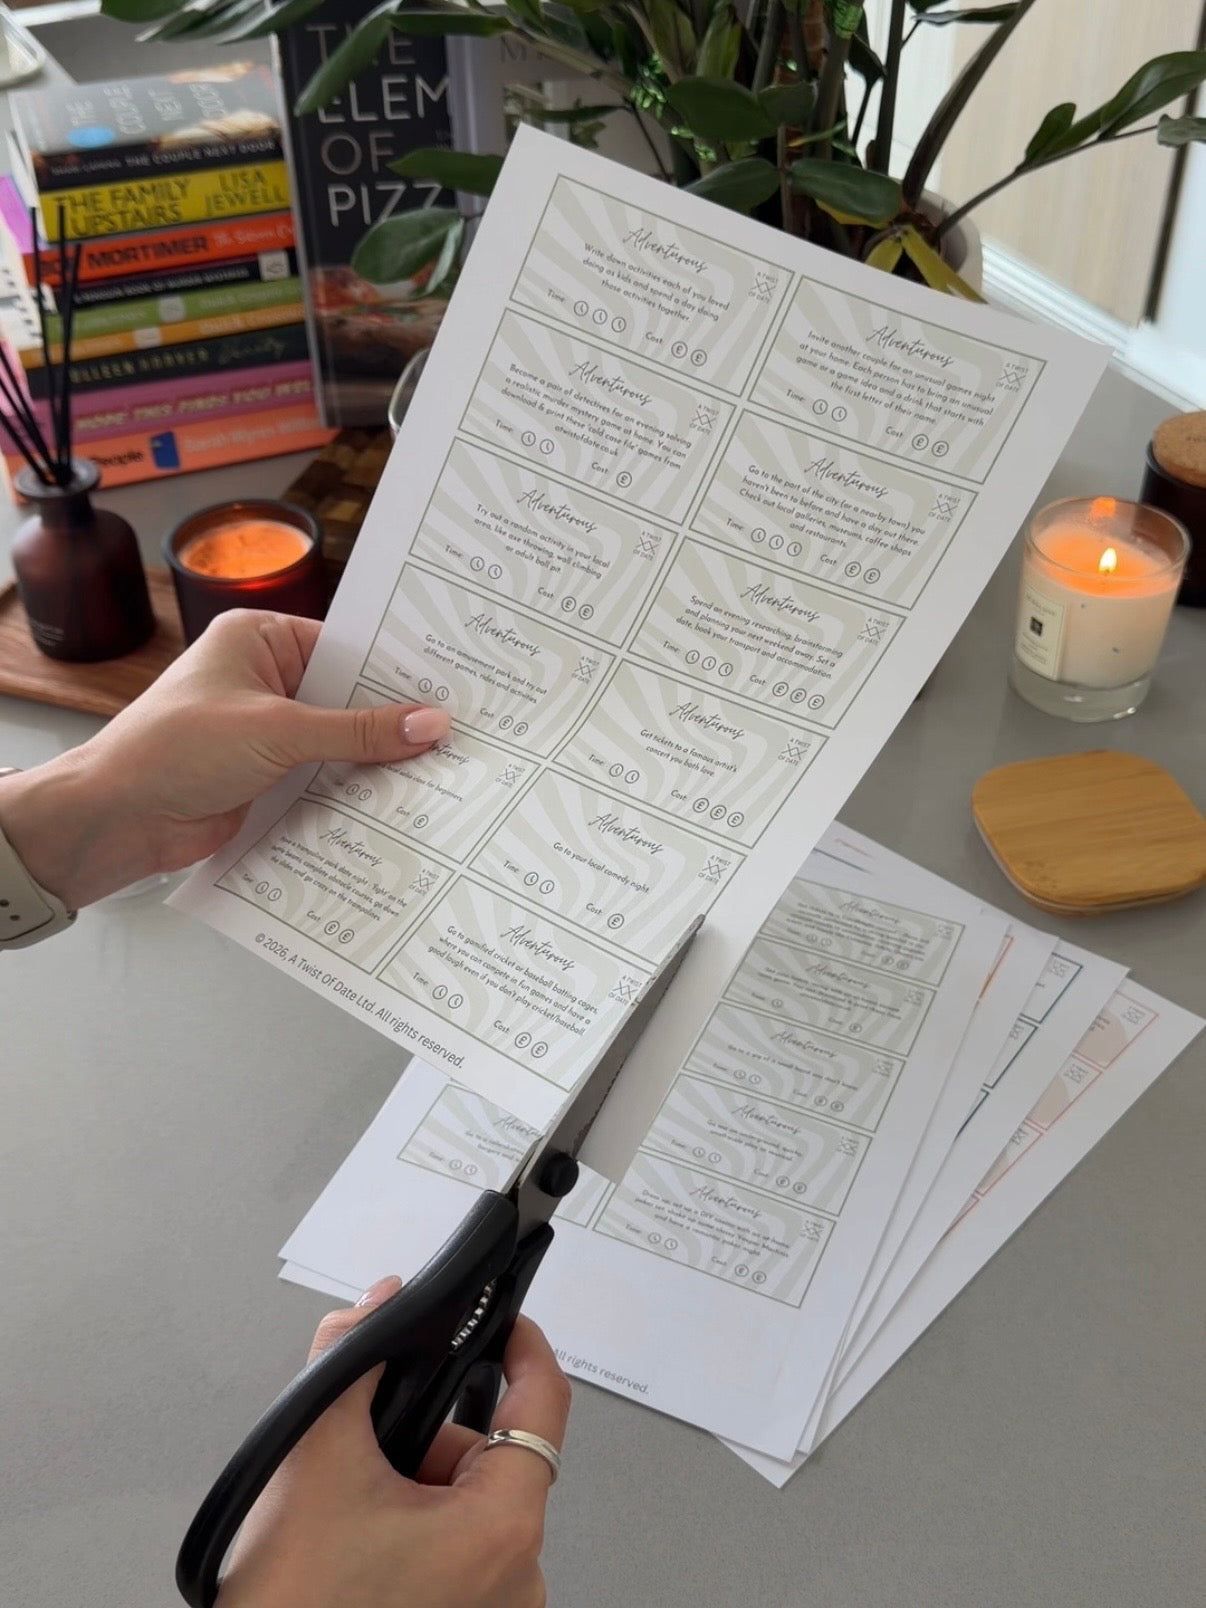 THE
COUPLE
NEXT
DOOR
THE COUPLE NEXT DOOR
THE FAMILY
UPSTAIRS
LISA
JEWELL
MORTIMER
People
THE
ELEM
OF
PIZZ
Adventurous
Write down activities each of you loved
doing as kids and spend a day doing
those activities together.
Time:
Cost: £ £
A TWIST
OF DATE
Adventurous
Invite another couple for an unusual games night
at your home. Each person has to bring an unusual
game or a game idea and a drink that starts with
the first letter of their name.
Time:
Cost: £ £
A TWIST
OF DATE
Adventurous
Become a pair of detectives for an evening solving
a realistic murder mystery game at home. You can
download & print these 'cold case file' games from
atwistofdate.co.uk
Time:
Cost: £
A TWIST
OF DATE
Adventurous
Go to the part of the city (or a nearby town) you
haven't been to before and have a day out there.
Check out local galleries, museums, coffee shops
and restaurants.
Time:
Cost: £ £
A TWIST
OF DATE
Adventurous
Try out a random activity in your local
area, like axe throwing, wall climbing
or adult ball pit.
Time:
Cost: £ £
A TWIST
OF DATE
Adventurous
Spend an evening researching, brainstorming
and planning your next weekend away. Set a
date, book your transport and accommodation.
Time:
Cost: £ £ £
A TWIST
OF DATE
Adventurous
Go to an amusement park and try out
different games, rides and activities.
Time:
Cost: £ £
A TWIST
OF DATE
Adventurous
Get tickets to a famous artist's
concert you both love.
Time:
Cost: £ £ £
A TWIST
OF DATE
local salsa class for beginners.
Cost: £
A TWIST
OF DATE
Adventurous
Go to your local comedy night.
Time:
Cost: £
A TWIST
OF DATE
Adventurous
Have a trampoline park date night. 'Fight' on the
battle beams, complete obstacle courses, go down
the slides and go crazy on the trampolines.
Time:
Cost: £ £
A TWIST
OF DATE
Adventurous
Go to gamified cricket or baseball batting cages,
where you can compete in fun games and have a
good laugh even if you don't play cricket/baseball.
Time:
Cost: £ £
A TWIST
OF DATE
© 2026, A Twist Of Date Ltd. All rights reserved.
Adventurous
Adventurous
Adventurous
Go to a gig of a small band you don't know.
Time:
Cost: £ £
Adventurous
Time:
Cost: £ £
Adventurous
Time:
Cost: £ £
All rights reserved.